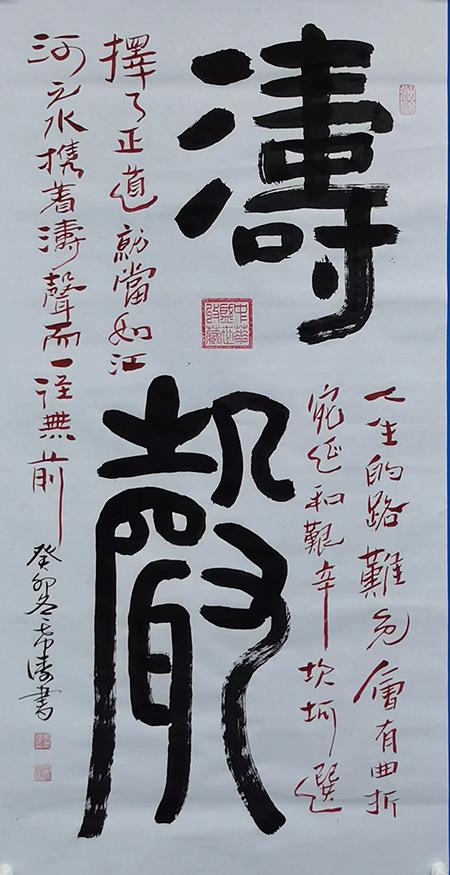 濤聲
人生的路難免會有曲折
宛延和艱辛坎坷選
擇了正道就當如江
河之水携着濤聲而一往無前
癸卯希濤書